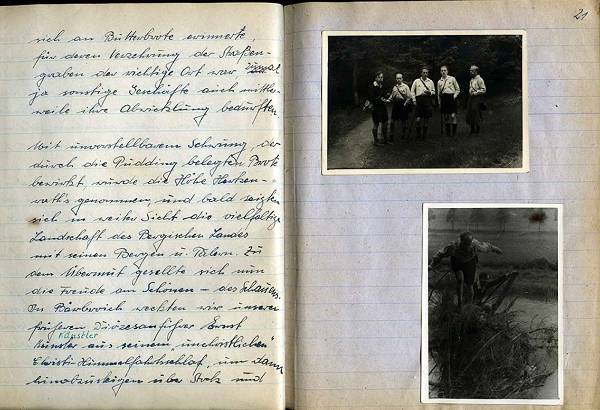 sich an Butterbrote erinnerte,
für deren Verzehrung der Straßen-
graben der richtige Ort war, zumal
ja sonstige Geschäfte auch mittler-
weile ihre Abwicklung bedurften.
Mit unvorstellbarem Schwung, der
durch die Pudding belegten Brote
bewirkt, wurde die Höhe Herken-
raths genommen, und bald zeigten
sich in weiter Sicht die vielfältige
Landschaft des Bergischen Landes
mit seinen Bergen u. Tälern. Zu
dem Übermut gesellte sich nun
die Freude am Schönen – des Schauens.
In Bärbroich weckten wir unseren
früheren Diözesanführer Ernst
Künstler
Künster aus seinem „unchristlichen"
Christi-Himmelfahrtschlaf, um dann
hinabzusteigen über Stock und
21